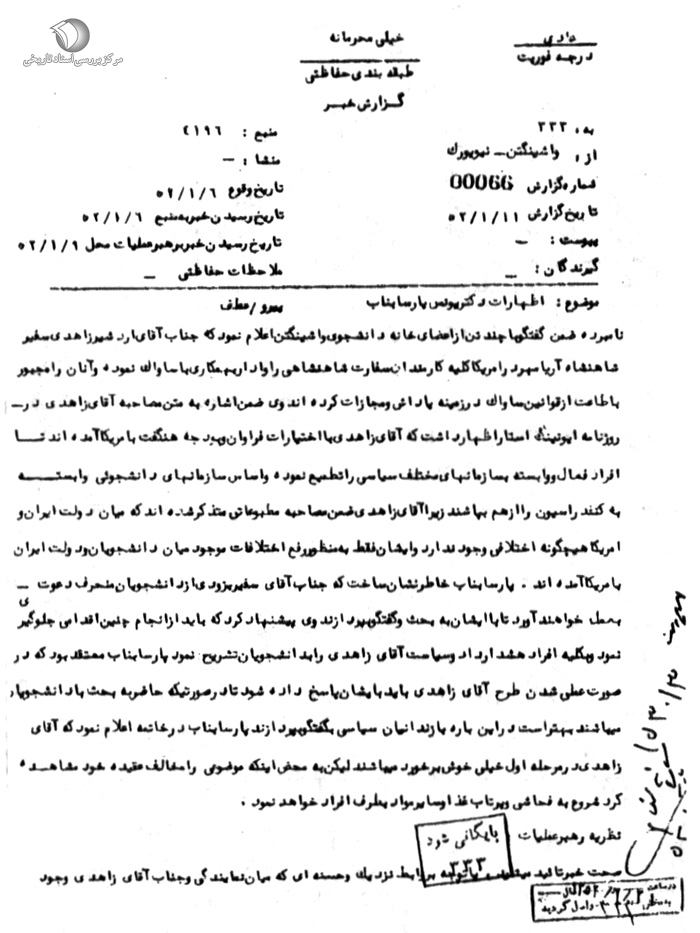 مرکز بررسی اسناد تاریخی
خیلی محرمانه
طبقه بندی حفاظتی
گزارش خبر
عادی
درجه فوریت
به: ۳۳۳
از: واشینگتن ـ نیویورک
شماره گزارش 00066
تاریخ گزارش ۵۲/۱/۱۱
پیوست: ـ
گیرندگان: ـ
منبع: ۴۱۹۶
منشاء: ـ
تاریخ وقوع ۵۲/۱/۶
تاریخ رسیدن خبر به منبع ۵۲/۱/۶
تاریخ رسیدن خبر برهبر عملیات محل ۵۲/۱/۹
ملاحظات حفاظتی ـ
موضوع: اظهارات دکتر یونس پارسا بناب پیرو/عطف
نامبرده ضمن گفتگو با چند تن از اعضای خانه دانشجوی واشینگتن اعلام نمود که جناب آقای اردشیر زاهدی سفیر
شاهنشاه آریامهر در امریکا کلیه کارمندان سفارت شاهنشاهی را وادار بهمکاری با ساواک نموده و آنان را مجبور
باطاعت از قوانین ساواک در زمینه پاداش و مجازات کرده اند وی ضمن اشاره به متن مصاحبه آقای زاهدی در ـ
روزنامه ایونینگ استار اظهار داشت که آقای زاهدی با اختیارات فراوان و بودجه هنگفت بامریکا آمده اند تا
افراد فعال و وابسته بسازمانهای مختلف سیاسی را تطمیع نموده و اساس سازمانهای دانشجوئی وابسته
به کنفدراسیون را از هم بپاشند زیرا آقای زاهدی ضمن مصاحبه مطبوعاتی متذکر شده اند که میان دولت ایران و
امریکا هیچگونه اختلافی وجود ندارد و ایشان فقط به منظور رفع اختلافات موجود میان دانشجویان و دولت ایران
بامریکا آمده اند . پارسا بناب خاطرنشان ساخت که جناب آقای سفیر بزودی از دانشجویان منحرف دعوت ـ
بعمل خواهند آورد تا با ایشان به بحث و گفتگو بپردازند وی پیشنهاد کرد که باید از انجام چنین اقدامی جلوگیری
نمود و بکلیه افراد هشدار داد و سیاست آقای زاهدی را بدانشجویان تشریح نمود پارسا بناب معتقد بود که در
صورت عملی شدن طرح آقای زاهدی باید بایشان پاسخ داده شود تا در صورتیکه حاضر به بحث با دانشجویان
میباشند بهتر است در این باره با زندانیان سیاسی بگفتگو بپردازند پارسا بناب در خاتمه اعلام نمود که آقای
زاهدی در مرحله اول خیلی خوش برخورد میباشند لیکن به محض اینکه موضوعی را مخالف عقیده خود مشاهده
کرد شروع به فحاشی و پرتاب غذا و سایر مواد بطرف افراد خواهد نمود .
نظریه رهبر عملیات
بایگانی شود
۳۳۳
صحت خبر تائید میشود با توجه بروابط نزدیک و حسنه ای که میان نمایندگی و جناب آقای زاهدی وجود